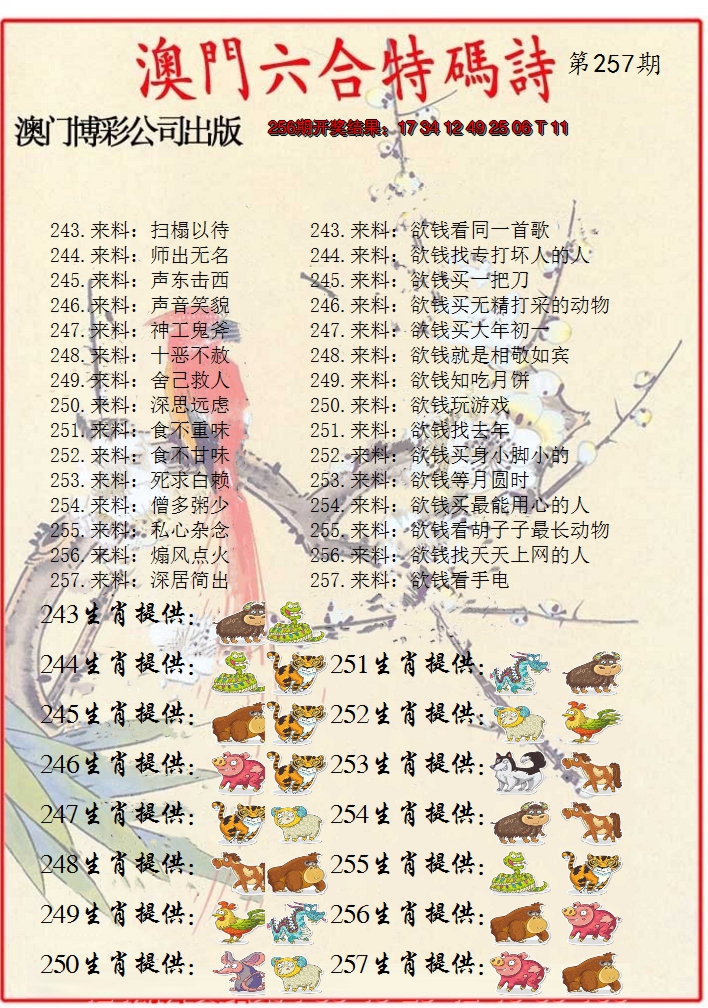 澳門六合特碼詩 第257期
澳门博彩公司出版 256期开奖结果：17 34 12 49 25 06 T 11
243.来料：扫榻以待 243.来料：欲钱看同一首歌
244.来料：师出无名 244.来料：欲钱找专打坏人的人
245.来料：声东击西 245.来料：欲钱买一把刀
246.来料：声音笑貌 246.来料：欲钱买无精打采的动物
247.来料：神工鬼斧 247.来料：欲钱买大年初一
248.来料：十恶不赦 248.来料：欲钱就是相敬如宾
249.来料：舍己救人 249.来料：欲钱知吃月饼
250.来料：深思远虑 250.来料：欲钱玩游戏
251.来料：食不重味 251.来料：欲钱找去年
252.来料：食不甘味 252.来料：欲钱买身小脚小的
253.来料：死求白赖 253.来料：欲钱等月圆时
254.来料：僧多粥少 254.来料：欲钱买最能用心的人
255.来料：私心杂念 255.来料：欲钱看胡子子最长动物
256.来料：煽风点火 256.来料：欲钱找天天上网的人
257.来料：深居简出 257.来料：欲钱看手电
243生肖提供：
244生肖提供： 251生肖提供：
245生肖提供： 252生肖提供：
246生肖提供： 253生肖提供：
247生肖提供： 254生肖提供：
248生肖提供： 255生肖提供：
249生肖提供： 256生肖提供：
250生肖提供： 257生肖提供：